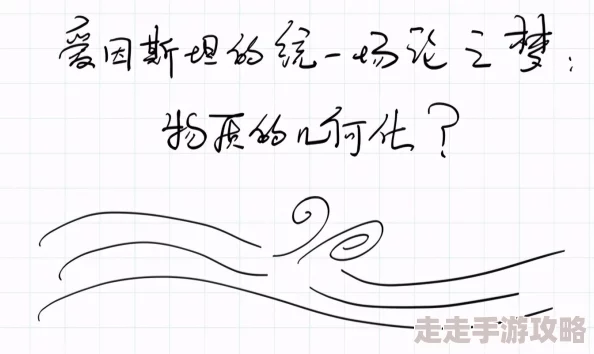 爱因斯坦的统一场论之梦:
物质的几何化?
走走手游攻略